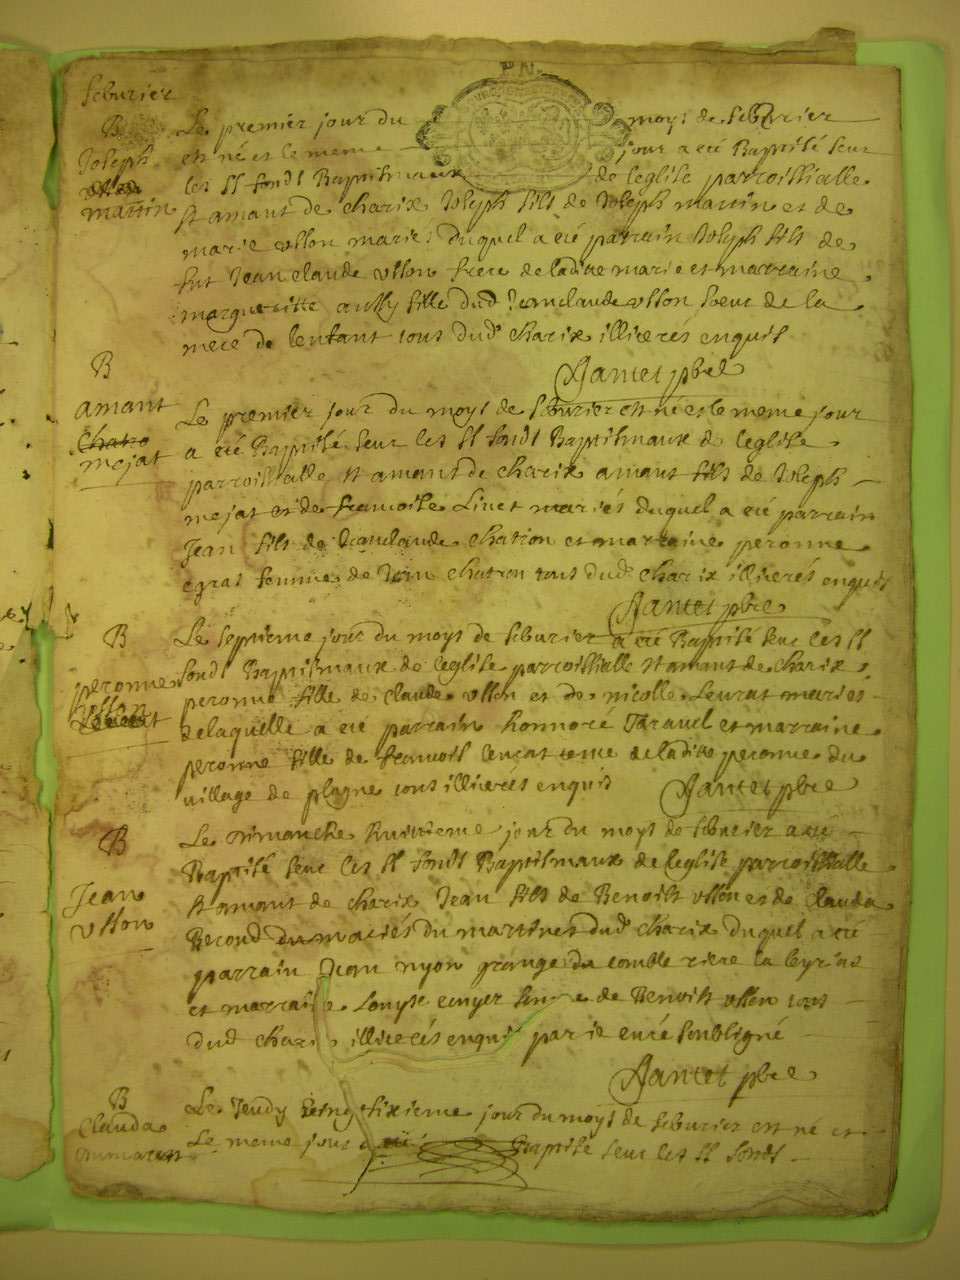 feburier
B
Joseph
martin
Le premier jour du moys de feburier
est né et le meme jour a eté Baptisé seur
les ss fonds Baptismaux de leglise parroissialle
st amant de charix Joseph fils de Joseph martin et de
marie utton mariés duquel a eté parrain Joseph fils de
fut Jean claude utton frere de ladite marie et marraine
margueritte aussy fille dud Jean claude utton soeur de la
mere de lenfant tous dud charix illiterés enquis
Jantet pbre
B
amant
chatro
mejat
Le premier jour du moys de feburier est né et le meme jour
a eté Baptisé seur les ss fonds Baptismaux de leglise
parroissialle st amant de charix amant fils de Joseph
mejat et de francoise Livet mariés duquel a eté parrain
Jean fils de Jean claude chatron et marraine peronne
egras femme de Jean chatron tous dud charix illiterés enquis
Jantet pbre
B
peronne
utton
Le septieme jour du moys de feburier a eté Baptisé seur les ss
fonds Baptismaux de leglise parroissialle st amant de charix
peronne fille de claude utton et de nicolle Levrat mariés
de laquelle a eté parrain honnoré Travel et marraine
peronne fille de francois de ladite peronne du
village de plagne tous illiterés enquis Jantet pbre
B
Jean
utton
Le Dimanche huitieme jour du moys de feburier a eté
Baptisé seur les ss fonds Baptismaux de leglise parroissialle
st amant de charix Jean fils de Benoist utton et de Clauda
Recond mariés du martinet dud charix duquel a eté
parrain Jean nyon grange du comble riere la leyriat
et marraine de Benoist utton tous
dud charix illiterés enquis par ie curé soubsigné
Jantet pbre
B
Clauda
Le Jeudy vingt sixieme jour du moys de feburier est né et
Le meme jour a eté Baptisé seur les ss fonds